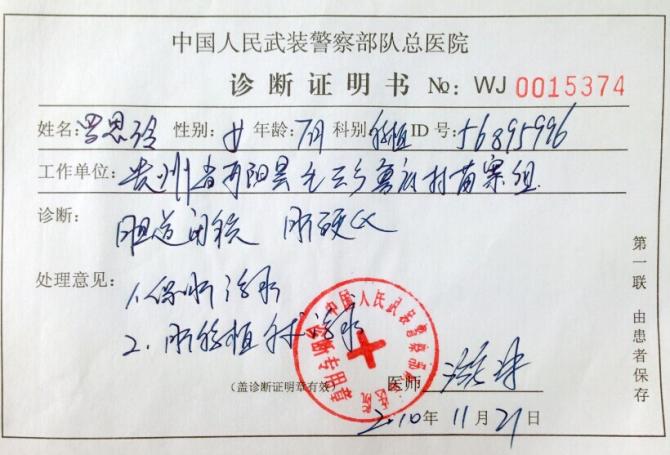 中国人民武装警察部队总医院
诊断证明书 No: WJ 0015374
姓名: 罗恩玲 性别: 女 年龄: 7月 科别 移植 ID号: 56895996
工作单位: 贵州省 阳县 村苗寨组
诊断:
胆道闭锁 肝硬化
处理意见:
1. 保肝治疗
2. 肝移植手术治疗
中国人民武装警察部
章用专
(盖诊断证明章有效) 医师
2010年11月21日
第一联 由患者保存